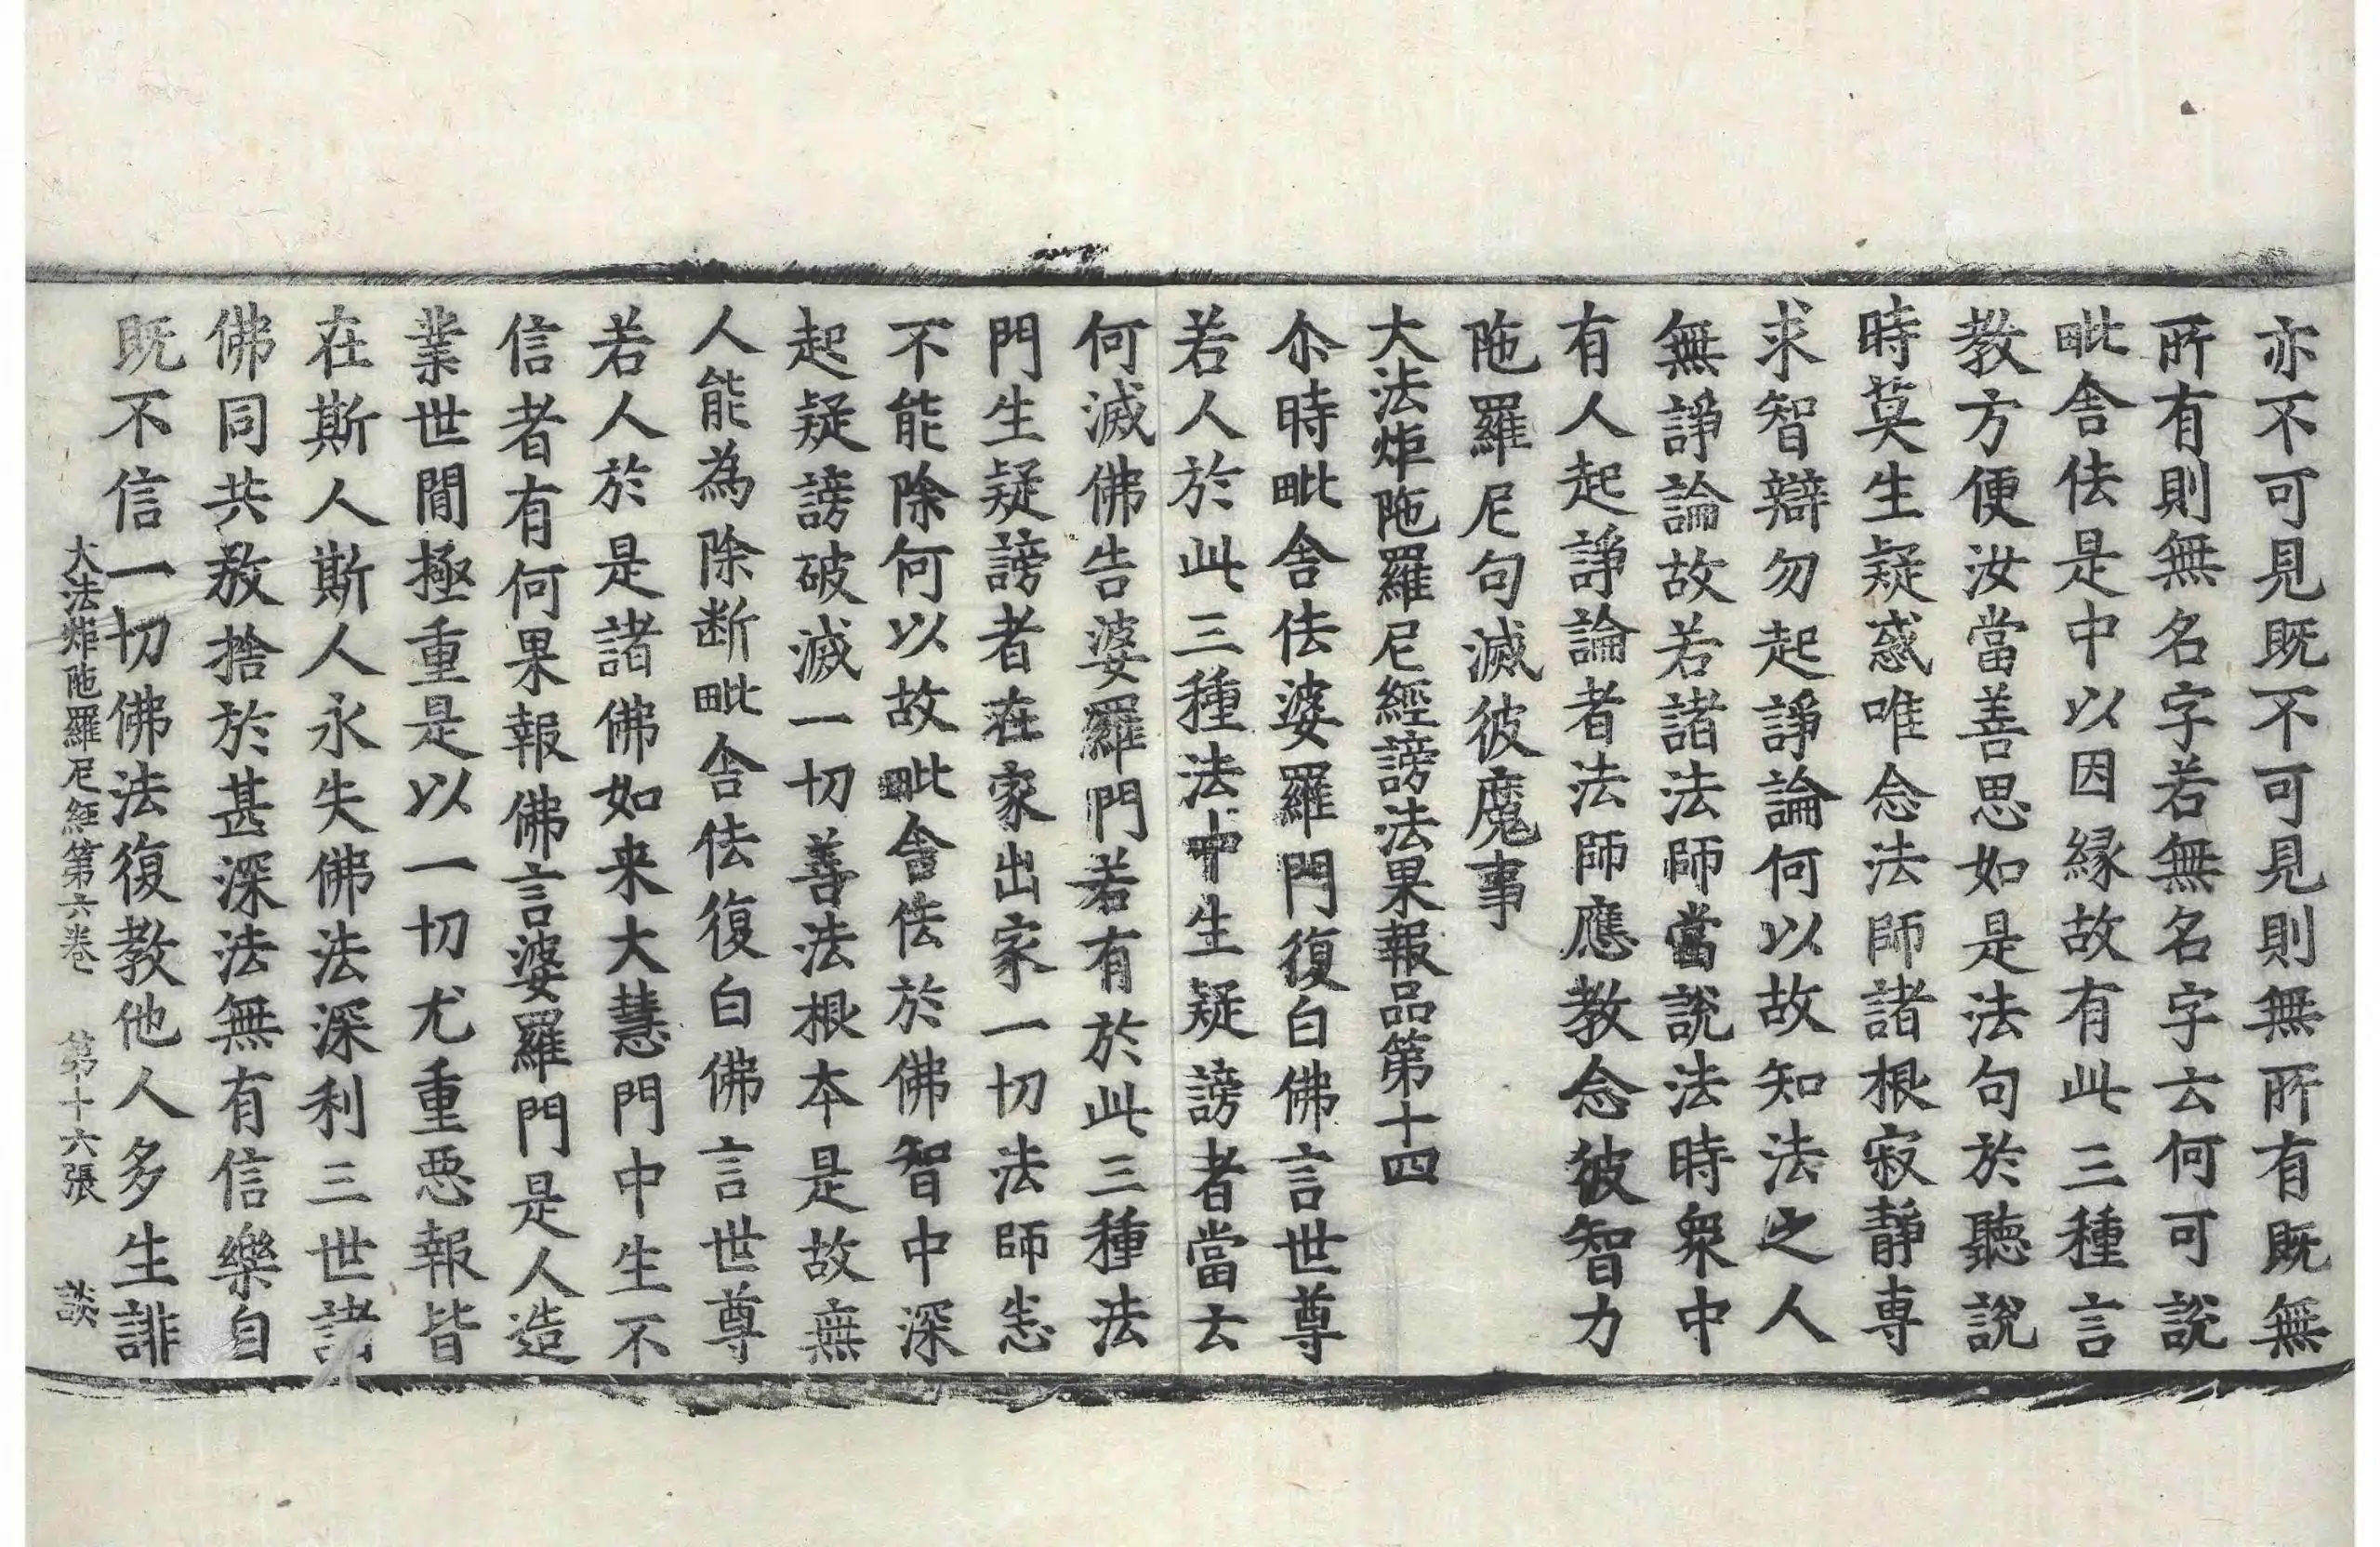 亦不可見既不可見則無所有既無
所有則無名字若無名字云何可說
毗舍佉是中以因緣故有此三種言
教方便汝當善思如是法句於聽說
時莫生疑惑唯念法師諸根寂靜專
求智辯勿起諍論何以故知法之人
無諍論故若諸法師當說法時衆中
有人起諍論者法師應教念彼智力
陁羅尼句滅彼魔事
大法炬陁羅尼經謗法果報品第十四
尒時毗舍佉婆羅門復白佛言世尊
若人於此三種法中生疑謗者當云
何滅佛告婆羅門若有於此三種法
門生疑謗者在家出家一切法師恙
不能除何以故毗舍佉於佛智中深
起疑謗破滅一切善法根本是故無
人能為除断毗舍佉復白佛言世尊
若人於是諸佛如来大慧門中生不
信者有何果報佛言婆羅門是人造
業世間極重是以一切尤重惡報皆
在斯人斯人永失佛法深利三世諸
佛同共教捨於甚深法無有信樂自
既不信一切佛法復教他人多生誹
大法炬陁羅尼經第六卷 第十六張 談